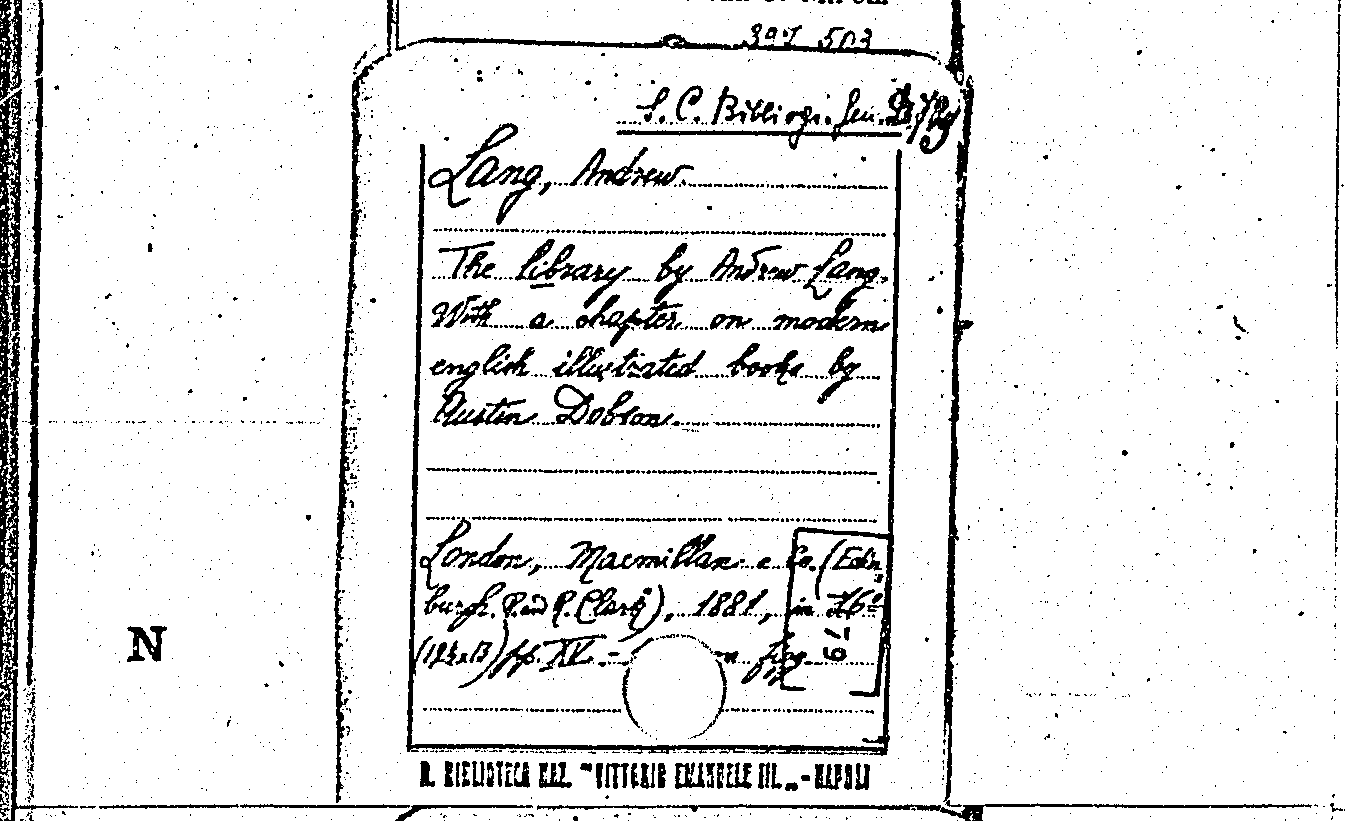 397 503
S. C. Bibliogr. Gen.
Lang, Andrew.
The library by Andrew Lang.
With a chapter on modern
english illustrated books by
Austin Dobson.
London, Macmillan e Co. (Edin
burgh. R. and R. Clark), 1881, in 16º
pp. XV. -
79
N
R. BIBLIOTECA NAZ. "VITTORIO EMANUELE III. „ - NAPOLI